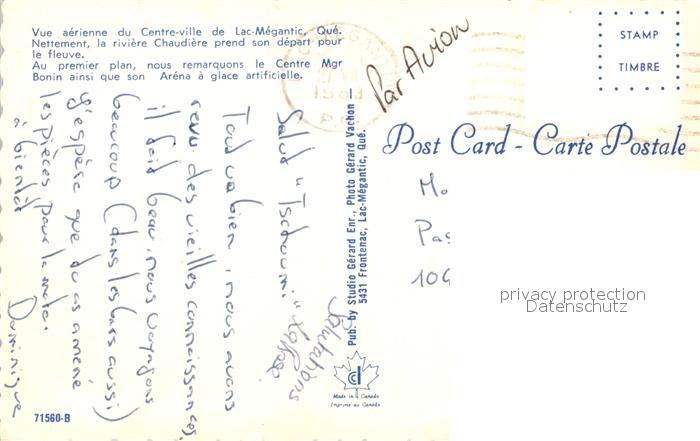 Vue aérienne du Centre-ville de Lac-Mégantic, Qué.
Nettement, la rivière Chaudière prend son départ pour
le fleuve.
Au premier plan, nous remarquons le Centre Mgr
Bonin ainsi que son Aréna à glace artificielle.
Par Avion
STAMP
TIMBRE
Post Card - Carte Postale
Salut "Tschoumi"
Tout va bien, nous avons
revu des vieilles connaissances,
il fait beau, nous voyageons
beaucoup (dans les bars aussi)
J'espère que tu as amené
les pièces pour la moto.
à bientôt
Dominique
Salutations
Pub. by Studio Gérard Enr., Photo Gérard Vachon
5431 Frontenac, Lac-Mégantic, Qué.
Mo
Pas
106
privacy protection
Datenschutz
Made in Canada
Imprimé au Canada
71560-B